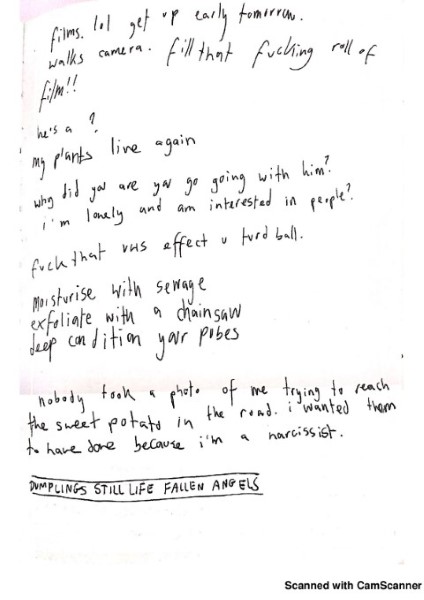 films. lol get up early tomorrow.
walks camera. fill that fucking roll of
film!!
he's a ?
my plants live again
why did you are you go going with him?
i'm lonely and am interested in people?
fuck that vhs effect u turd ball.
moisturise with sewage
exfoliate with a chainsaw
deep condition your pubes
nobody took a photo of me trying to reach
the sweet potato in the road. i wanted them
to have done because i'm a narcissist.
DUMPLINGS STILL LIFE FALLEN ANGELS
Scanned with CamScanner